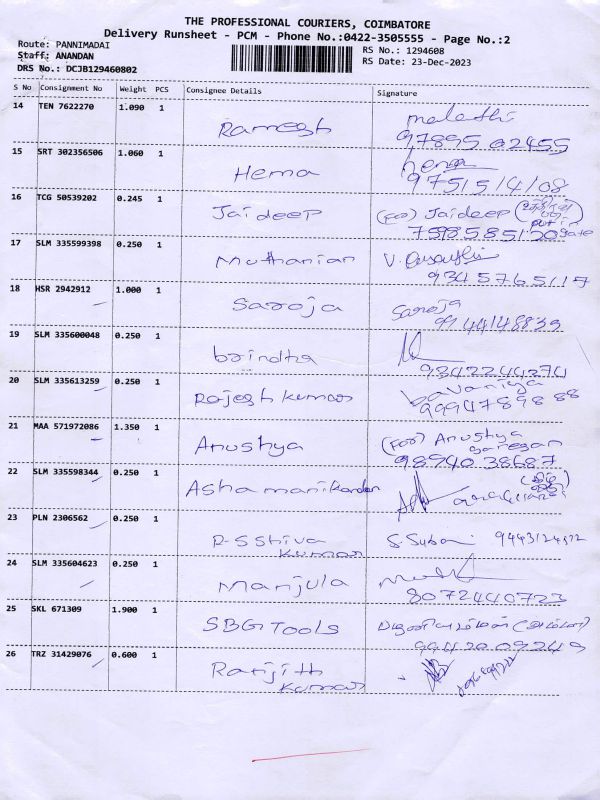 THE PROFESSIONAL COURIERS, COIMBATORE
Delivery Runsheet - PCM - Phone No.:0422-3505555 - Page No.:2
Route: PANNIMADAI
RS No.: 1294608
Staff: ANANDAN
RS Date: 23-Dec-2023
DRS No.: DCJB129460802
S No Consignment No Weight PCS Consignee Details Signature
14 TEN 7622270 1.090 1 Ramesh Malathi
97895 02455
15 SRT 302356506 1.060 1 Hema hema
9751514108
16 TCG 50539202 0.245 1 Jaideep (For) Jaideep
put in gate
7598585150
17 SLM 335599398 0.250 1 Muthanian V.
9345765117
18 HSR 2942912 1.000 1 Saroja Saroja
9944148839
19 SLM 335600048 0.250 1 brindha
9842244274
20 SLM 335613259 0.250 1 Rajesh Kumar
9994789888
21 MAA 571972086 1.350 1 Anushya (For) Anushya
98940 38687
22 SLM 335598344 0.250 1 Asha manikandan
23 PLN 2306562 0.250 1 R-S Shiva Kumar S. Suba
24 SLM 335604623 0.250 1 Manjula
8072440723
25 SKL 671309 1.900 1 SBG Tools
99420 09249
26 TRZ 31429076 0.600 1 Ranjith
Kumar